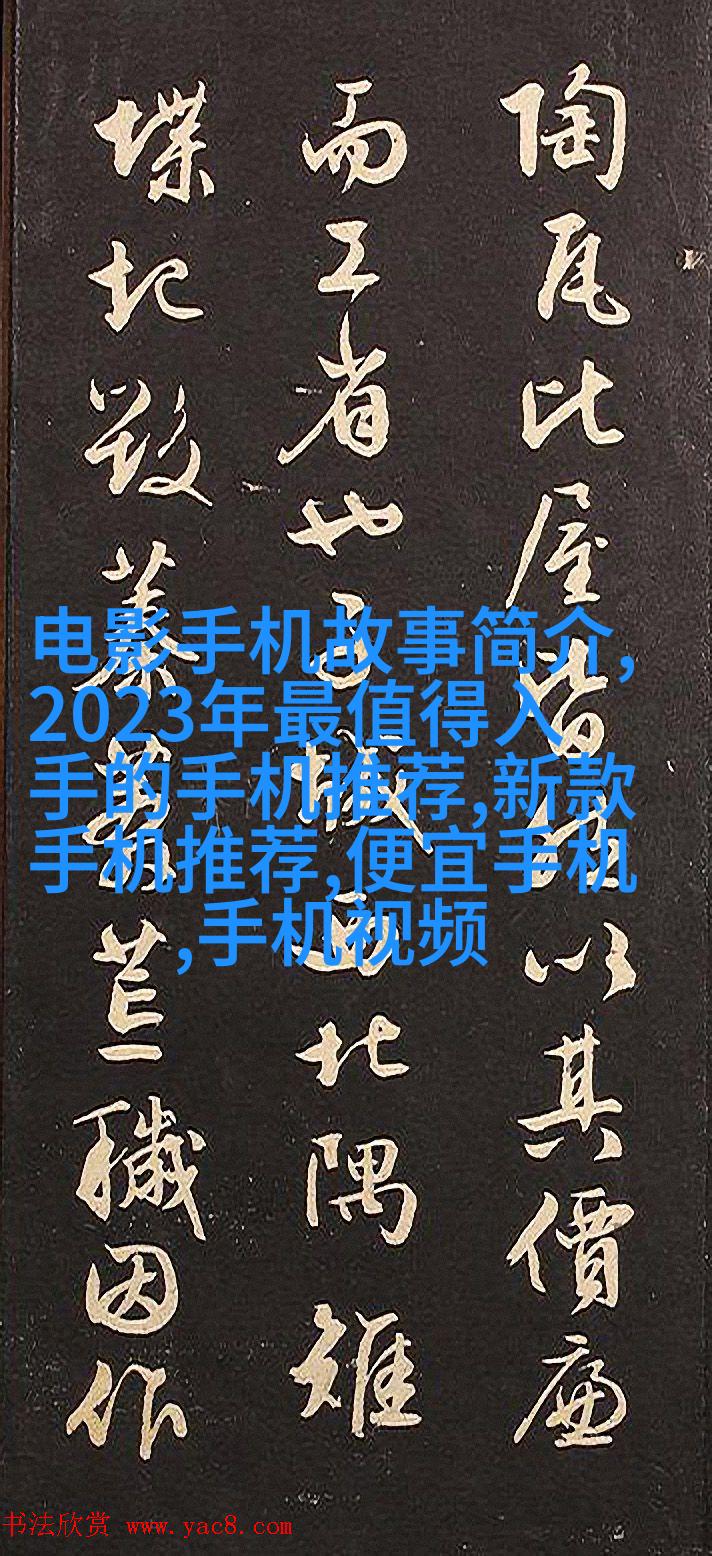 陶瓦比屋皆然以其價廉
而工省也城西北隅雉
堞圮毀蓁莽荒穢因作
电影手机故事简介,
2023年最值得入
手的手机推荐,新款
手机推荐,便宜手机
,手机视频
书法欣赏 www.yac8.com